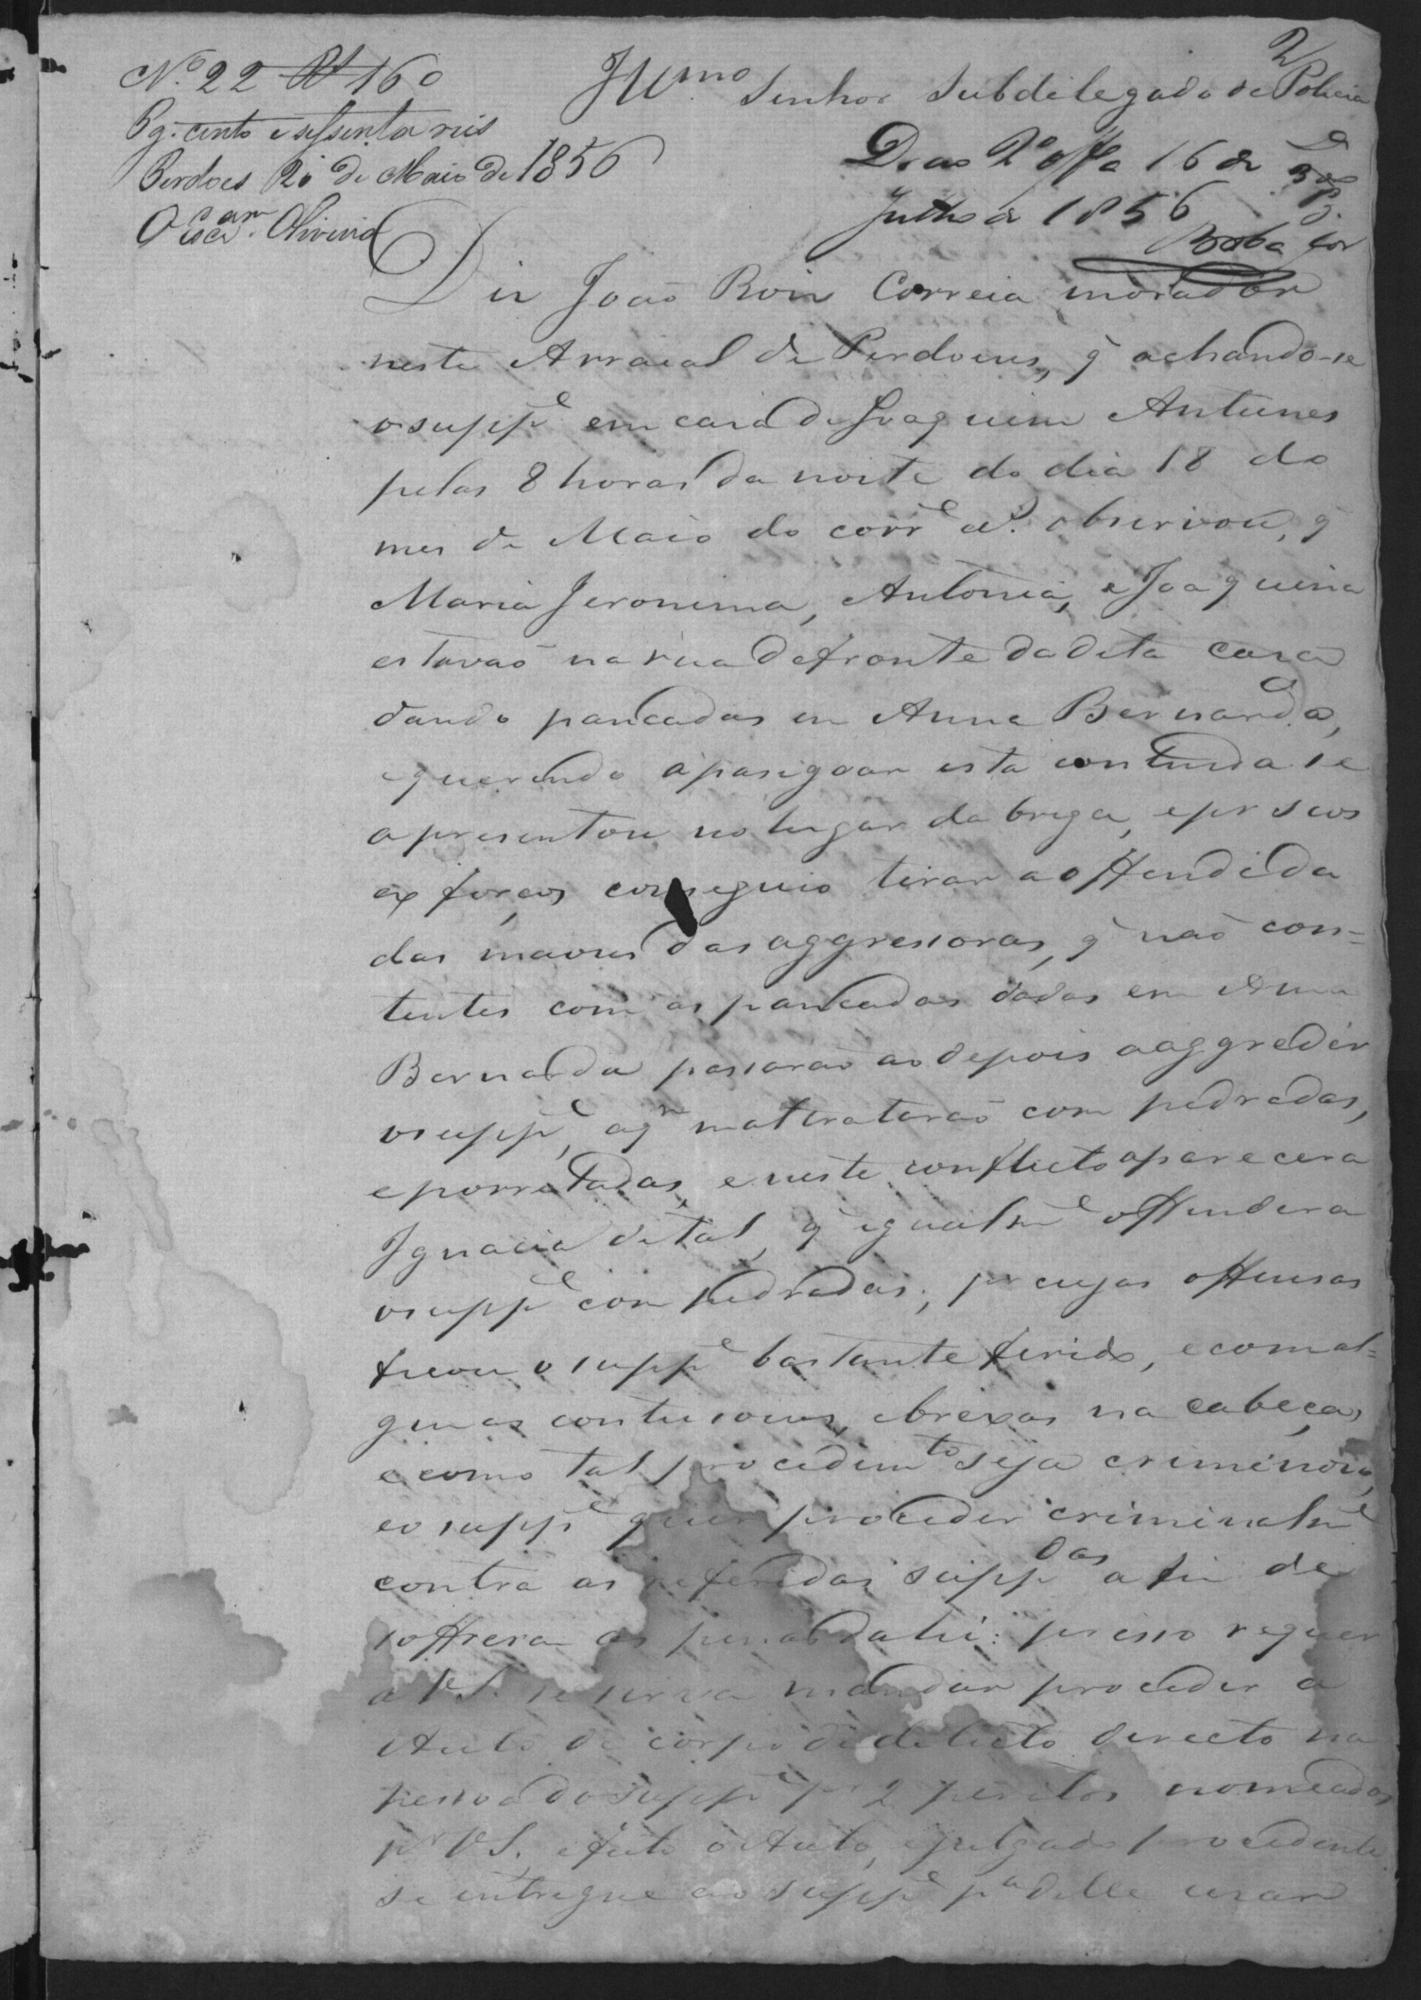 2
N.º 22 Rs 160
Pg. cento e sessenta reis
Perdões 20 de Maio de 1856
O Escr.am Oliveira
Illmo Senhor Subdelegado de Policia
D. ao 2º off.º 16 de
Julho de 1856
Diz João Roiz Correia morador
neste Arraial de Perdoens, q̃ achando-se
o suppe em casa de Joaquim Antunes
pelas 8 horas da noite do dia 18 do
mes de Maio do corre a. observou, q̃
Maria Jeronima, Antonia, e Joaquina
estavaõ na rua defronte da dita casa
dando pancadas em Anna Bernarda,
e querendo apasigoar esta contenda se
apresentou no lugar da briga, e pr seos
exforços conseguio tirar a offendida
das maons das aggressoras, q̃ naõ con=
tentes com as pancadas dadas em Anna
Bernarda passaraõ ao depois a aggredir
o suppe, a qm maltrataraõ com pedradas,
e porretadas, e neste conflicto aparecera
Ignacia de tal, q̃ igualme offendera
o suppe com pedradas; pr cujas offensas
ficou o suppe bastante ferido, e com al=
gumas contusoens, e brexas na cabeça,
e como tal procedimto seja criminoso,
e o suppe quer proceder criminalme
contra as referidas suppdas a fim de
soffrerem as penas da lei: por isso requer
a V.S. se sirva mandar proceder a
Auto de corpo de delicto directo na
pessoa do suppe pr 2 peritos nomeados
pr V.S. e feito o Auto, e julgado procedente
se entregue ao suppe pa delle usar